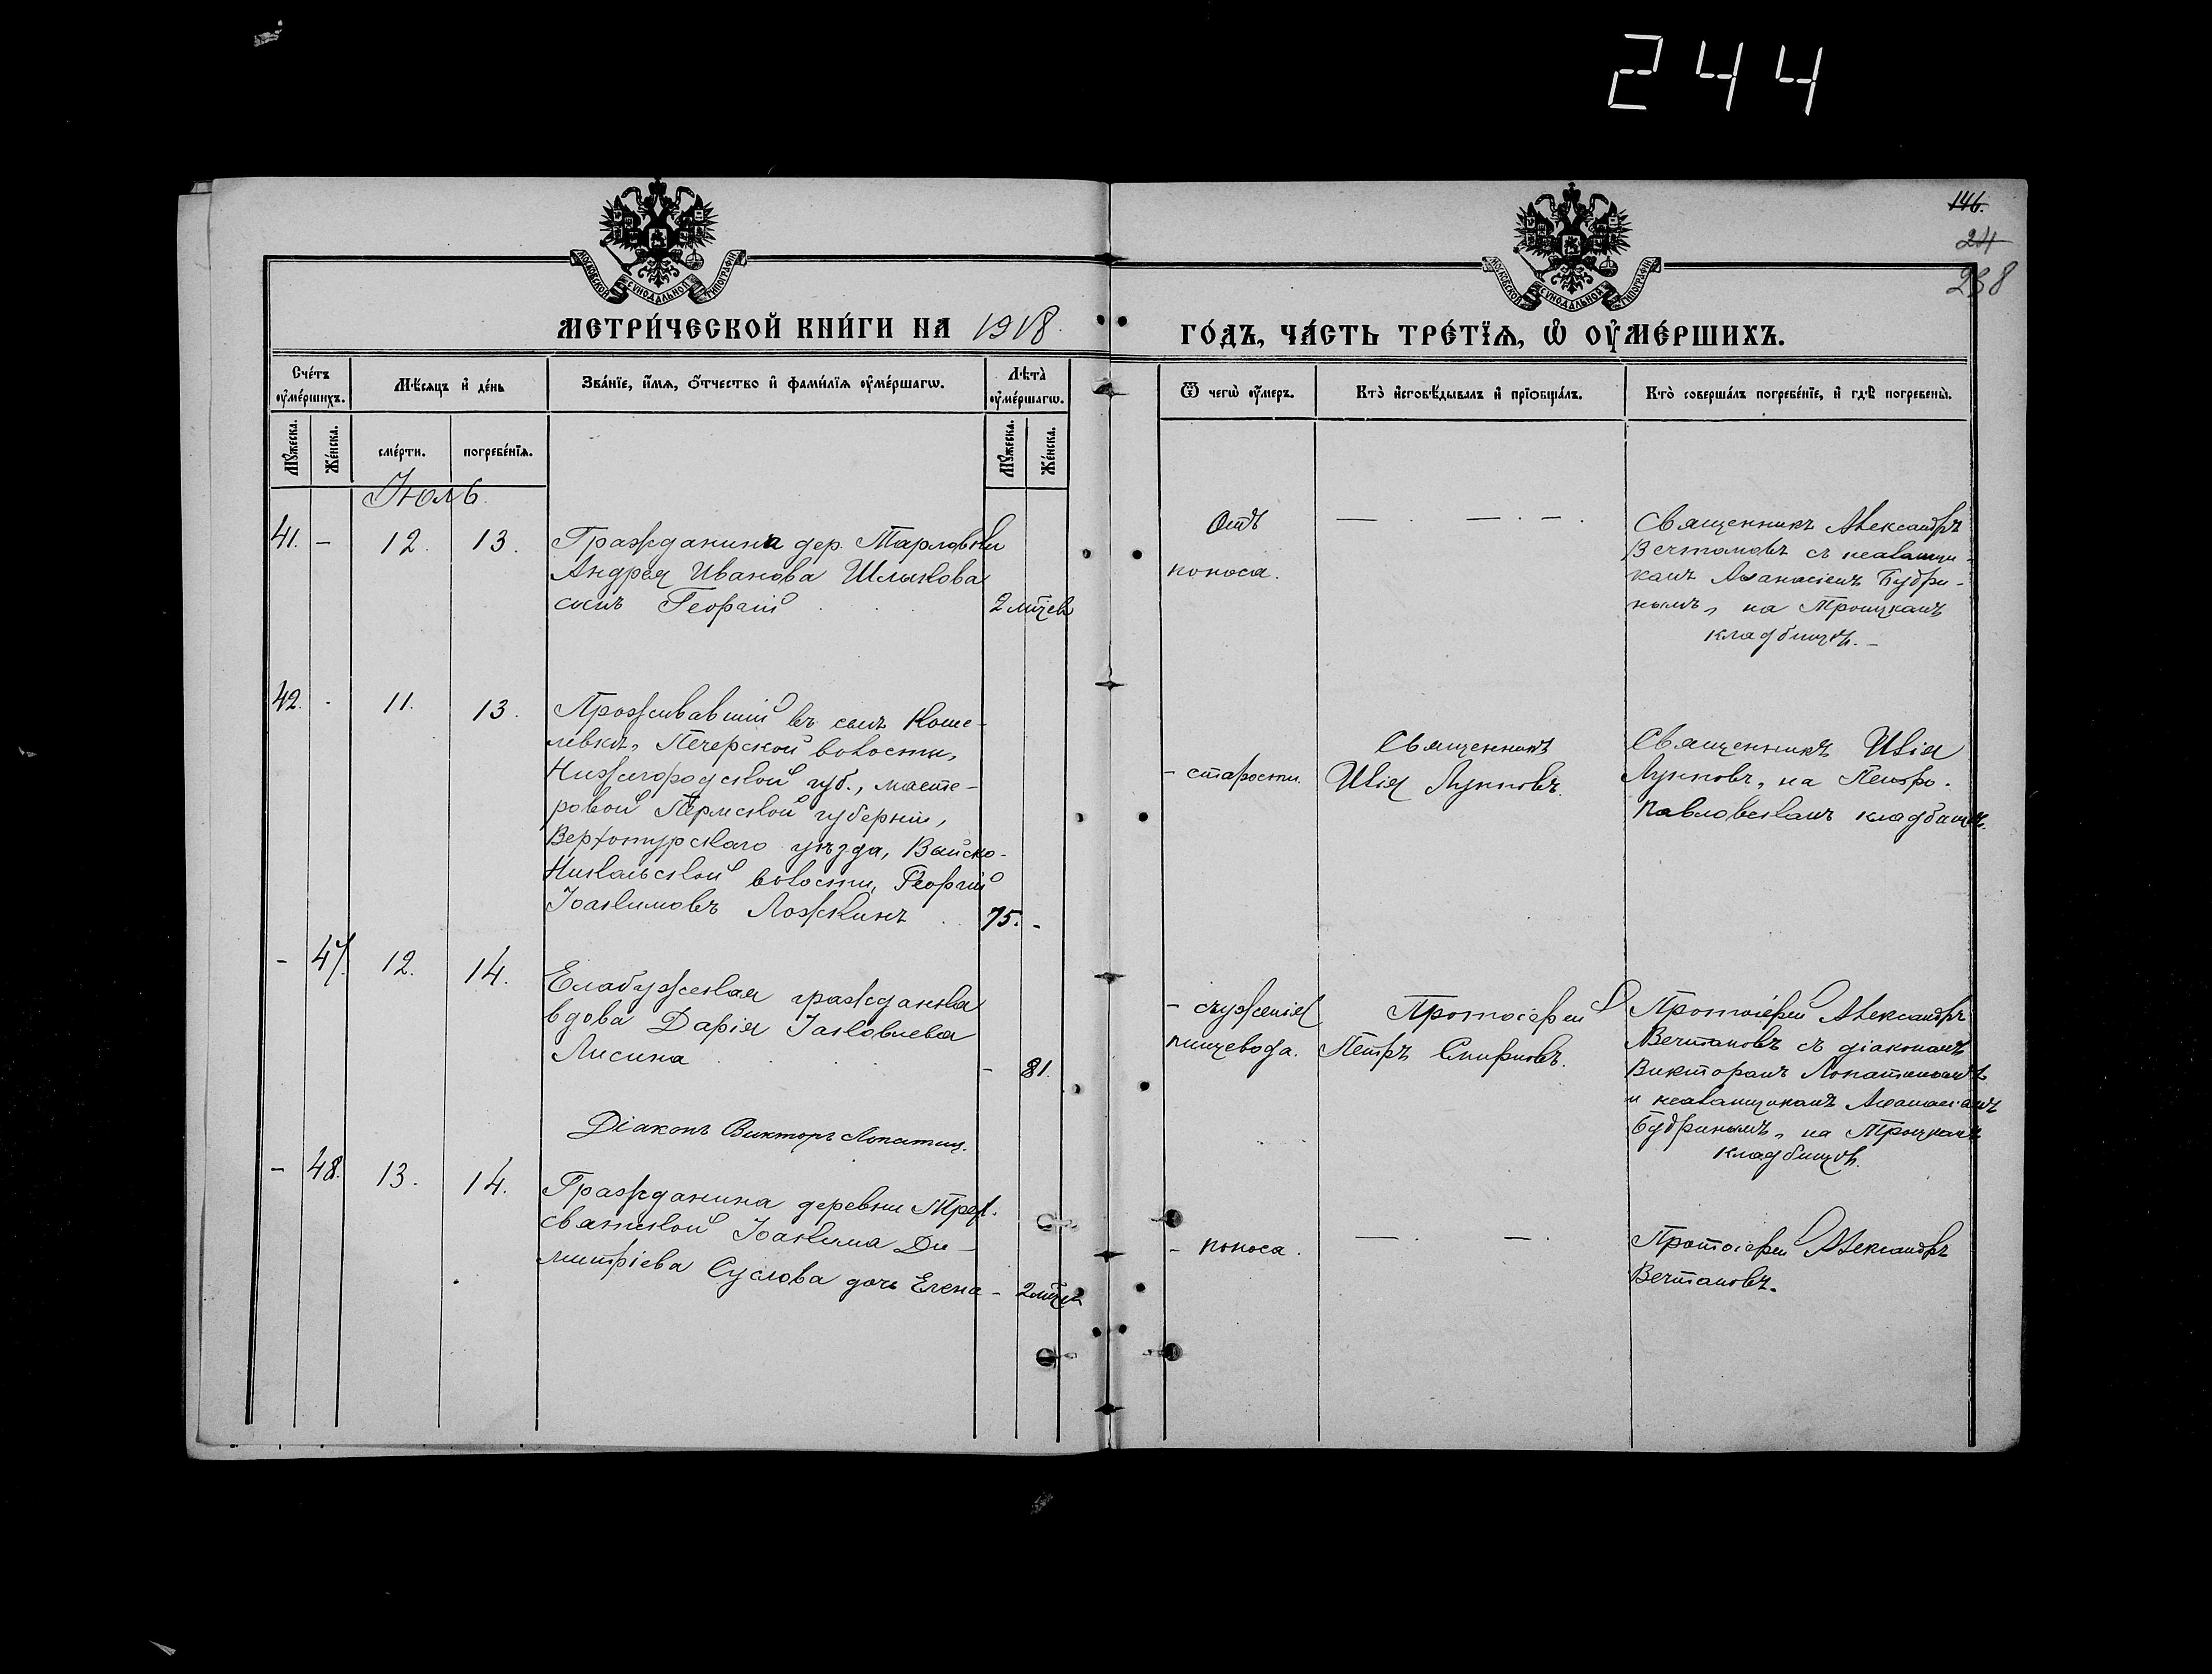 244
146.
24
238
МОСКОВСКОЙ СѴНОДАЛЬНОЙ ТИПОГРАФІИ
МОСКОВСКОЙ СѴНОДАЛЬНОЙ ТИПОГРАФІИ
МЕТРИ́ЧЕСКОЙ КНИ́ГИ НА 1918.
ГО́ДЪ, ЧА́СТЬ ТРЕ́ТЇѦ, Ѡ҆ ОУ҆МЕ́РШИХЪ.
Сче́тъ оу҆ме́ршихъ.
Мѣ́сяцъ и҆ де́нь
Зва́нїе, и҆́мѧ, ѻ҆́тчество и҆ фами́лїѧ оу҆ме́ршагѡ.
Лѣ́та̀ оу҆ме́ршагѡ.
Ѿ чегѡ̀ оу҆́меръ.
Кто̀ и҆сповѣ́дывалъ и҆ прїѡбща́лъ.
Кто̀ соверша́лъ погребе́нїе, и҆ гдѣ̀ погребены̀.
Мꙋ́жеска.
Же́нска.
сме́рти.
погребе́нїѧ.
Мꙋ́жеска.
Же́нска.
Іюль
41. – 12. 13. Гражданина дер. Тарловки
Андрея Иванова Шлыкова
сынъ Георгій 2 мѣсъ
Отъ
поноса.
— . — . — .
Священникъ Александръ
Вечтомовъ съ псаломщи-
комъ Аѳанасіемъ Будри-
нымъ, на Троицкомъ
кладбищѣ. –
42. - 11. 13. Проживавшій въ селѣ Коше-
левкѣ, Печерской волости,
Нижегородской губ., масте-
ровой Пермской губерніи,
Верхотурскаго уѣзда, Выйско-
Никольской волости, Георгій
Іоакимовъ Ложкинъ 75. -
- старости.
Священникъ
Илія
Священникъ Илія
на Петро-
Павловскомъ кладбищѣ.
– 47. 12. 14. Елабужская гражданка
вдова Дарія Іаковлева
Лисина – 81.
- съуженія
пищевода.
Протоіерей
Петръ Смирновъ.
Протоіерей Александръ
Вечтомовъ съ діакономъ
Викторомъ Лопатинымъ
и псаломщикомъ Аѳанасіемъ
Будринымъ, на Троицкомъ
кладбищѣ.
Діаконъ Викторъ Лопатин.
– 48. 13. 14. Гражданина деревни Трех-
святской Іоакима Ди-
митріева Суслова дочь Елена – 2 мѣс
- поноса.
— . — .
Протоіерей Александръ
Вечтомовъ.